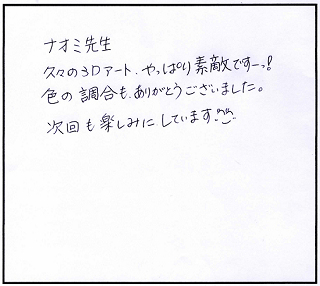 ナオミ先生
久々の3Dアート、やっぱり素敵ですーっ!
色の調合も、ありがとうございました。
次回も楽しみにしています^^